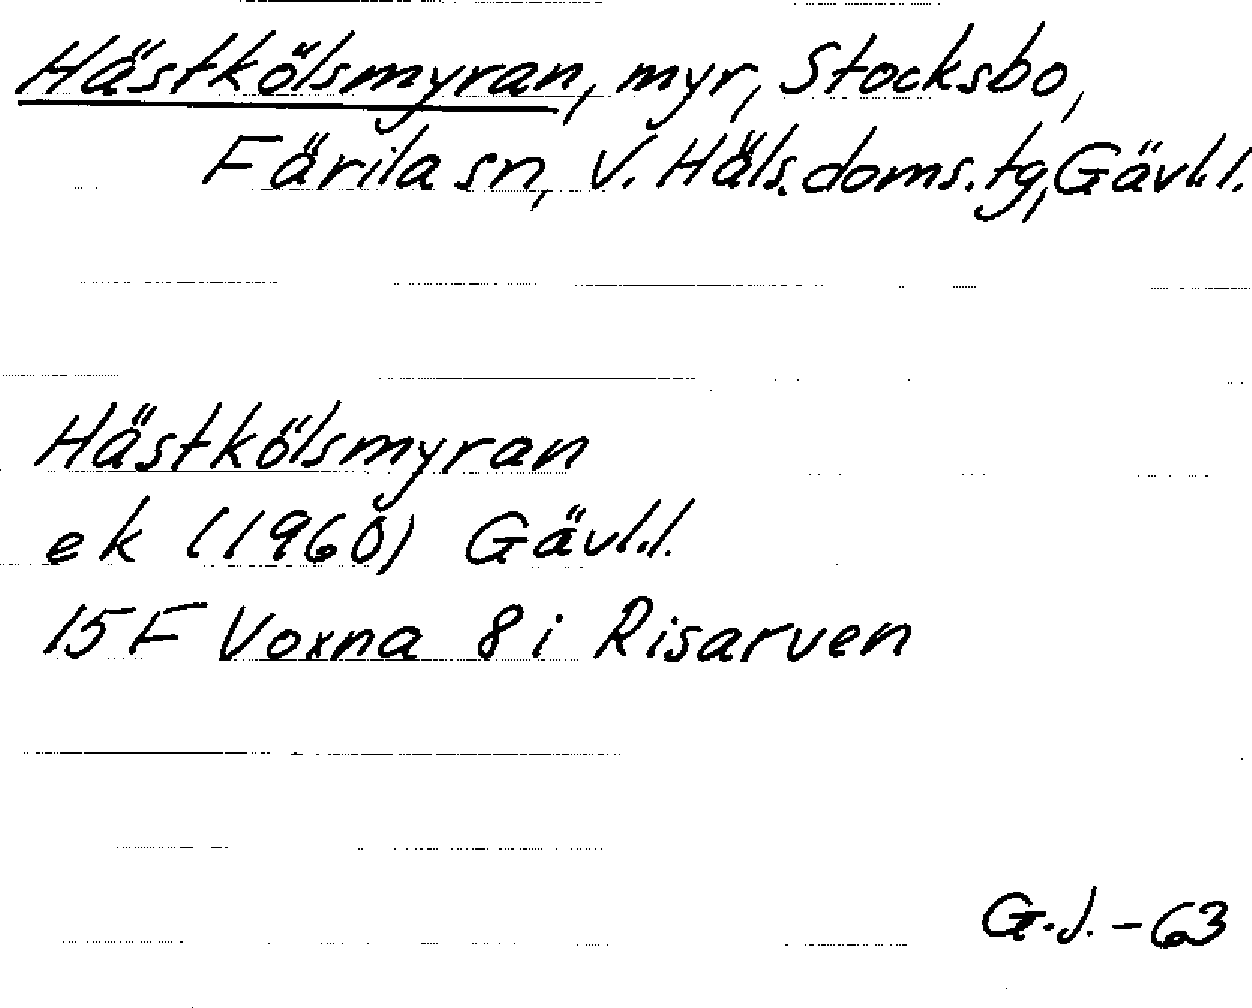 Hästkölsmyran, myr, Stocksbo,
Färila sn, V. Häls. doms. tg, Gävl. l.
Hästkölsmyran
ek (1960) Gävl. l.
15 F Voxna 8 i Risarven
G.J. - 63